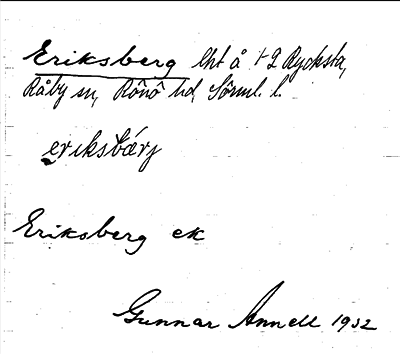 Eriksberg lht å 1/2 Rycksta,
Råby sn, Rönö hd, Sörml. l.
eriksbärj
Eriksberg ek
Gunnar Annell 1932